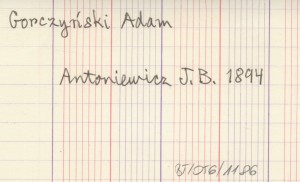 Gorczyński Adam
Antoniewicz J.B. 1894
BJ/OT6/1186